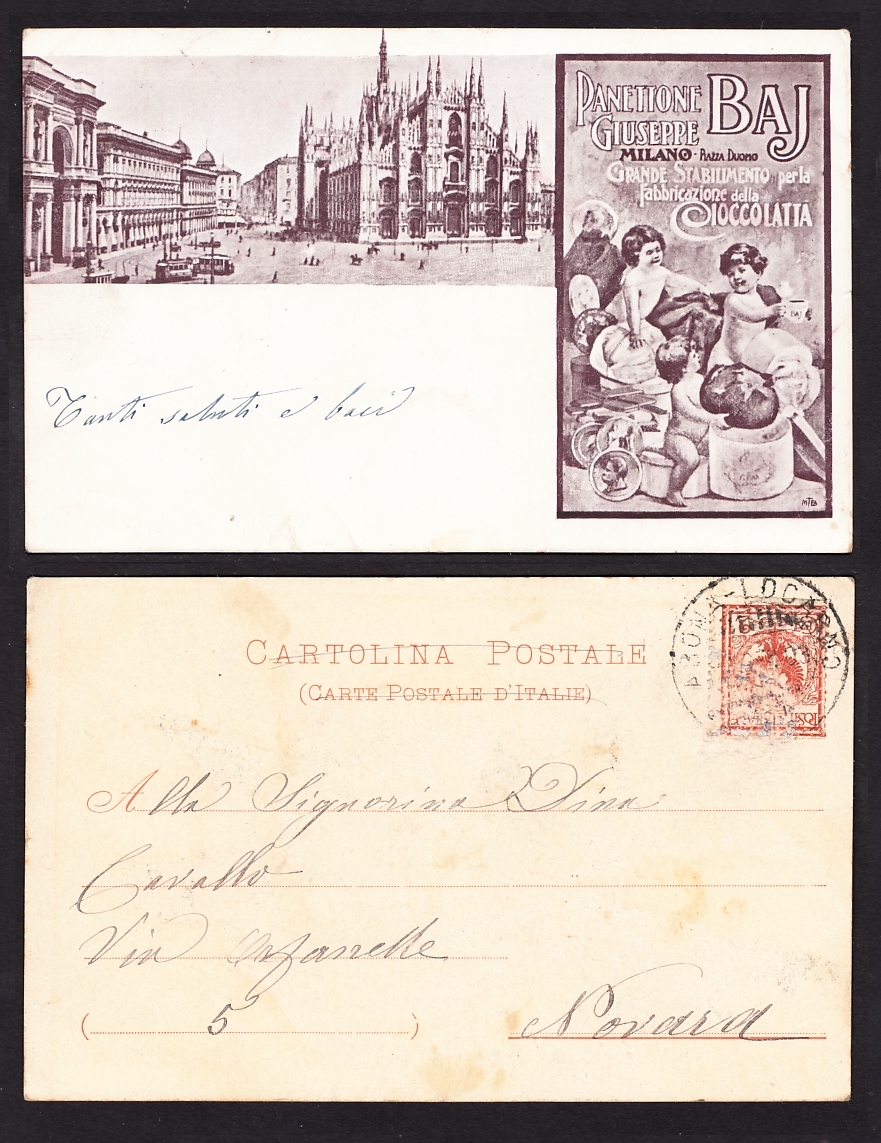 PANETTONE
GIUSEPPE BAJ
MILANO - PIAZZA DUOMO
GRANDE STABILIMENTO per la
fabbricazione della
CIOCCOLATTA
BAJ
MTB
Tanti saluti e baci
ARONA-LOCARNO
CARTOLINA POSTALE
(CARTE POSTALE D'ITALIE)
Alla Signorina Dina
Cavallo
Via Orfanelle
( 5 )
Novara